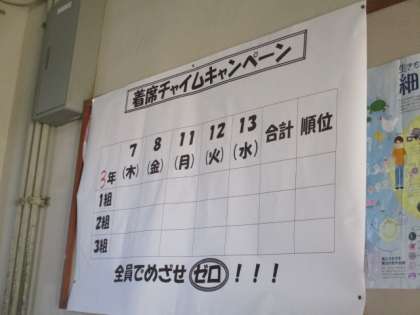 着席チャイムキャンペーン
7 8 11 12 13 合計 順位
3年 (木) (金) (月) (火) (水)
1組
2組
3組
全員でめざせ ゼロ ！！！
細